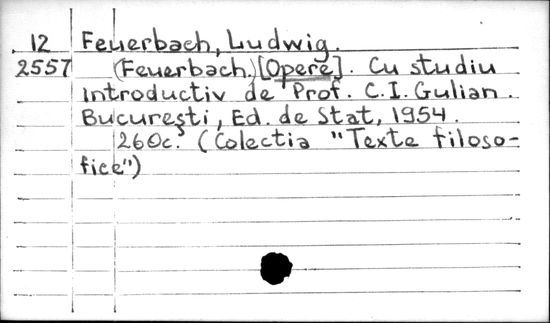 12 Feuerbach, Ludwig.
2557 (Feuerbach.) [Opere]. Cu studiu
introductiv de Prof. C.I. Gulian.
Bucureşti, Ed. de Stat, 1954.
260c. (Colectia "Texte filoso-
fice")